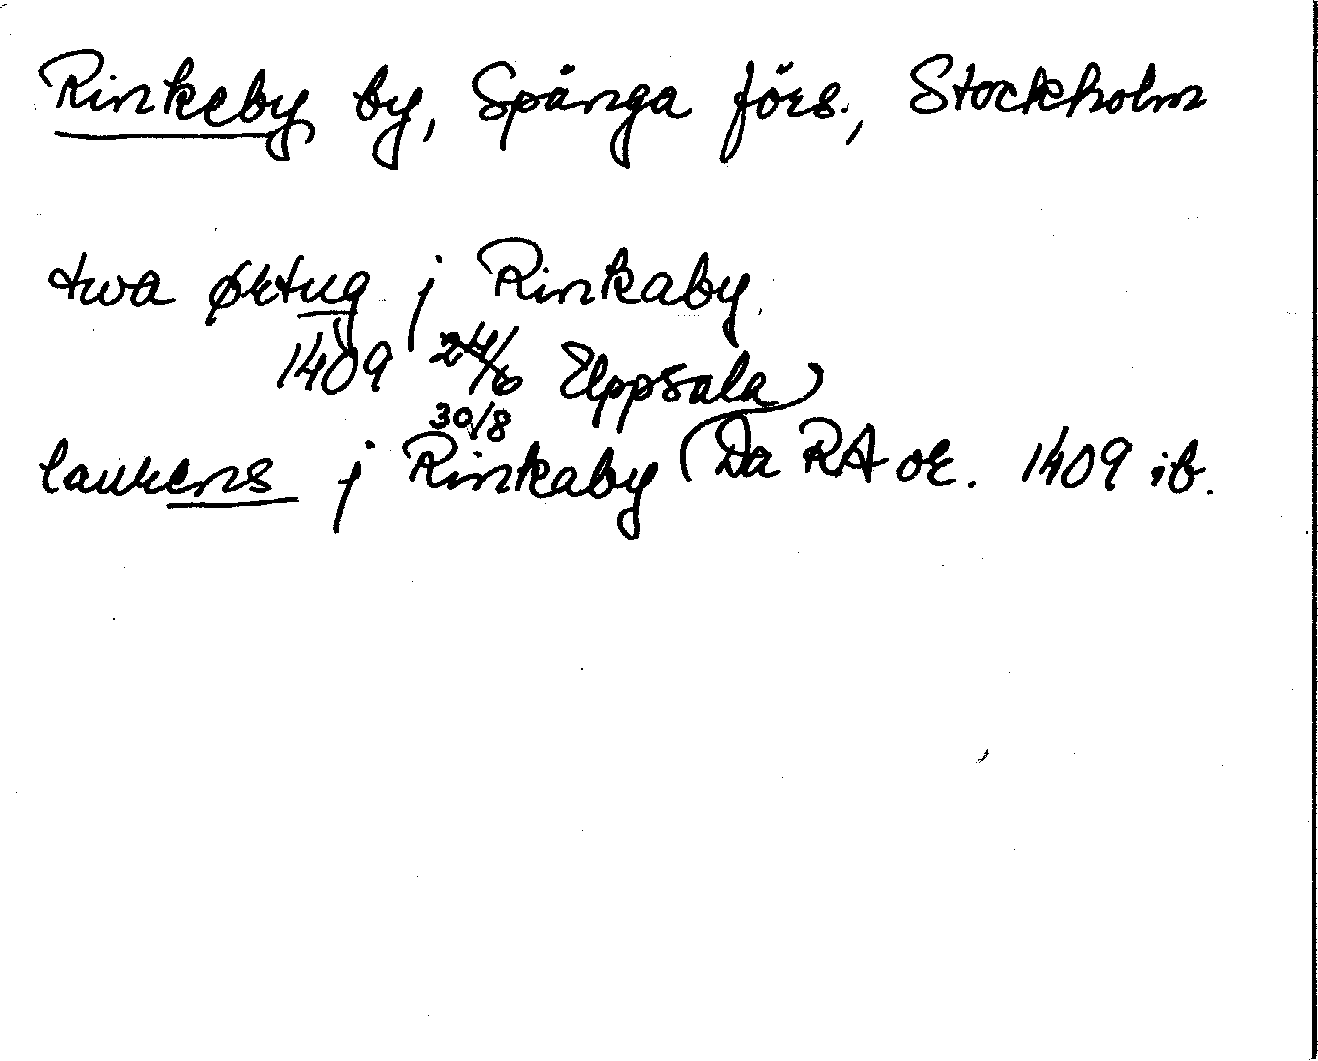 Rinkeby by, Spånga förs., Stockholm
twa ørtug j Rinkaby
1409 24/6 Uppsala
30/8
laurens j Rinkaby (Da RA or. 1409 ib.